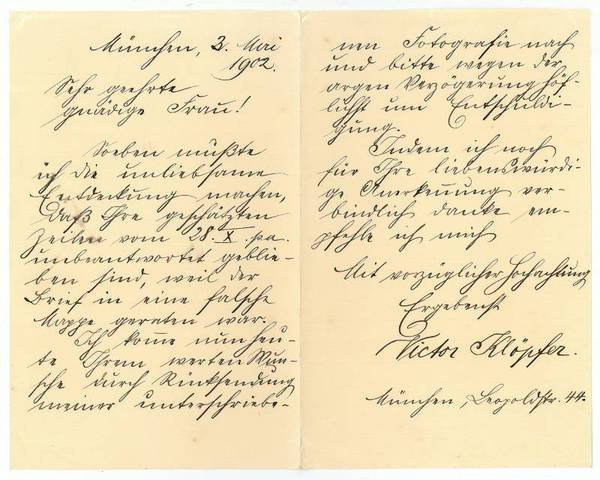 München, 2. Mai
1902.
Sehr geehrte
gnädige Frau!
Soeben mußte
ich die unliebsame
Entdeckung machen,
daß Ihre geschätzten
Zeilen vom 28. X. pa.
unbeantwortet geblie-
ben sind, weil der
Brief in eine falsche
Mappe geraten war.
Ich kome nun heu-
te Ihrem werten Wun-
sche durch Rücksendung
meiner unterschriebe-
nen Fotografie nach
und bitte wegen der
argen Verzögerung höf-
lichst um Entschuldi-
gung.
Indem ich noch
für Ihre liebenswürdi-
ge Anerkennung ver-
bindlich danke em-
pfehle ich mich
Mit vorzüglicher Hochachtung
Ergebenst
Victor Klöpfer.
München, Leopoldstr. 44.